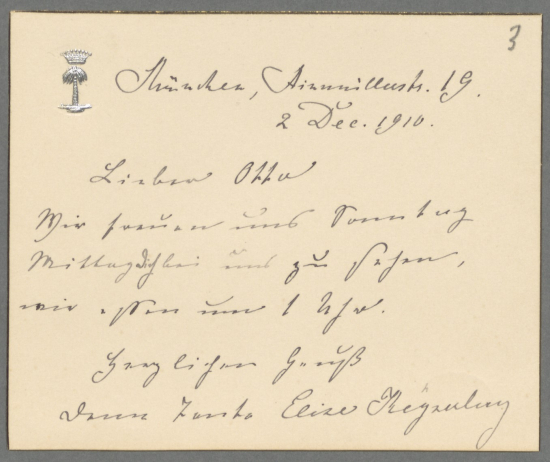 3
München, Ainmillerstr. 19.
2 Dec. 1910.
Lieber Otto
Wir freuen uns Sonntag
Mittag Dich bei uns zu sehen,
wir essen um 1 Uhr.
Herzlichen Gruß
Deine Tante Elise Keyserling